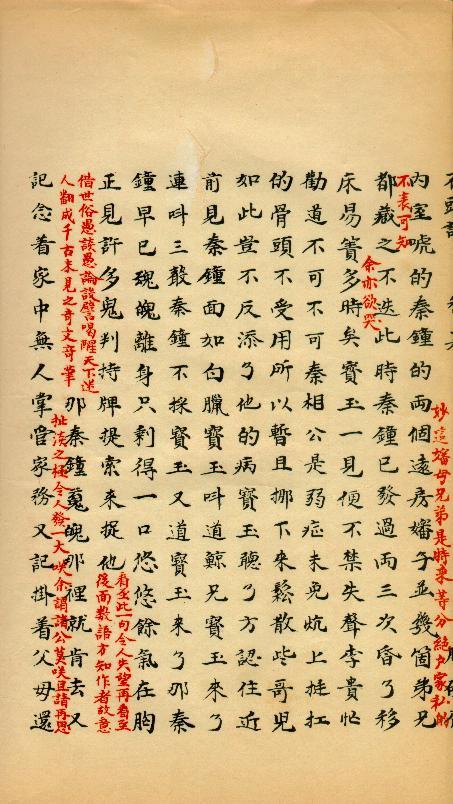 妙這嬸母兄弟是特來等分絕戶家私的
不表可知
內室唬的秦鐘的兩個遠房嬸子並幾箇弟兄
都藏之不迭此時秦鐘已發過兩三次昏了移
余亦欲哭
床易簀多時矣寶玉一見便不禁失聲李貴忙
勸道不可不可秦相公是弱症未免炕上挺扛
的骨頭不受用所以暫且挪下來鬆散些哥兒
如此豈不反添了他的病寶玉聽了方認住近
前見秦鐘面如白臘寶玉叫道鯨兄寶玉來了
連叫三聲秦鐘不採寶玉又道寶玉來了那秦
鐘早已魂魄離身只剩得一口悠悠餘氣在胸
正見許多鬼判持牌提索來捉他
看至此一句令人失望再看至
後面數語方知作者故意
借世俗愚談愚論設譬喝醒天下迷
人翻成千古未見之奇文奇筆
那秦鐘魂魄那裡就肯去又
扯淡之極令人發一大笑余謂諸公莫笑且請再思
記念着家中無人掌管家務又記掛着父母還